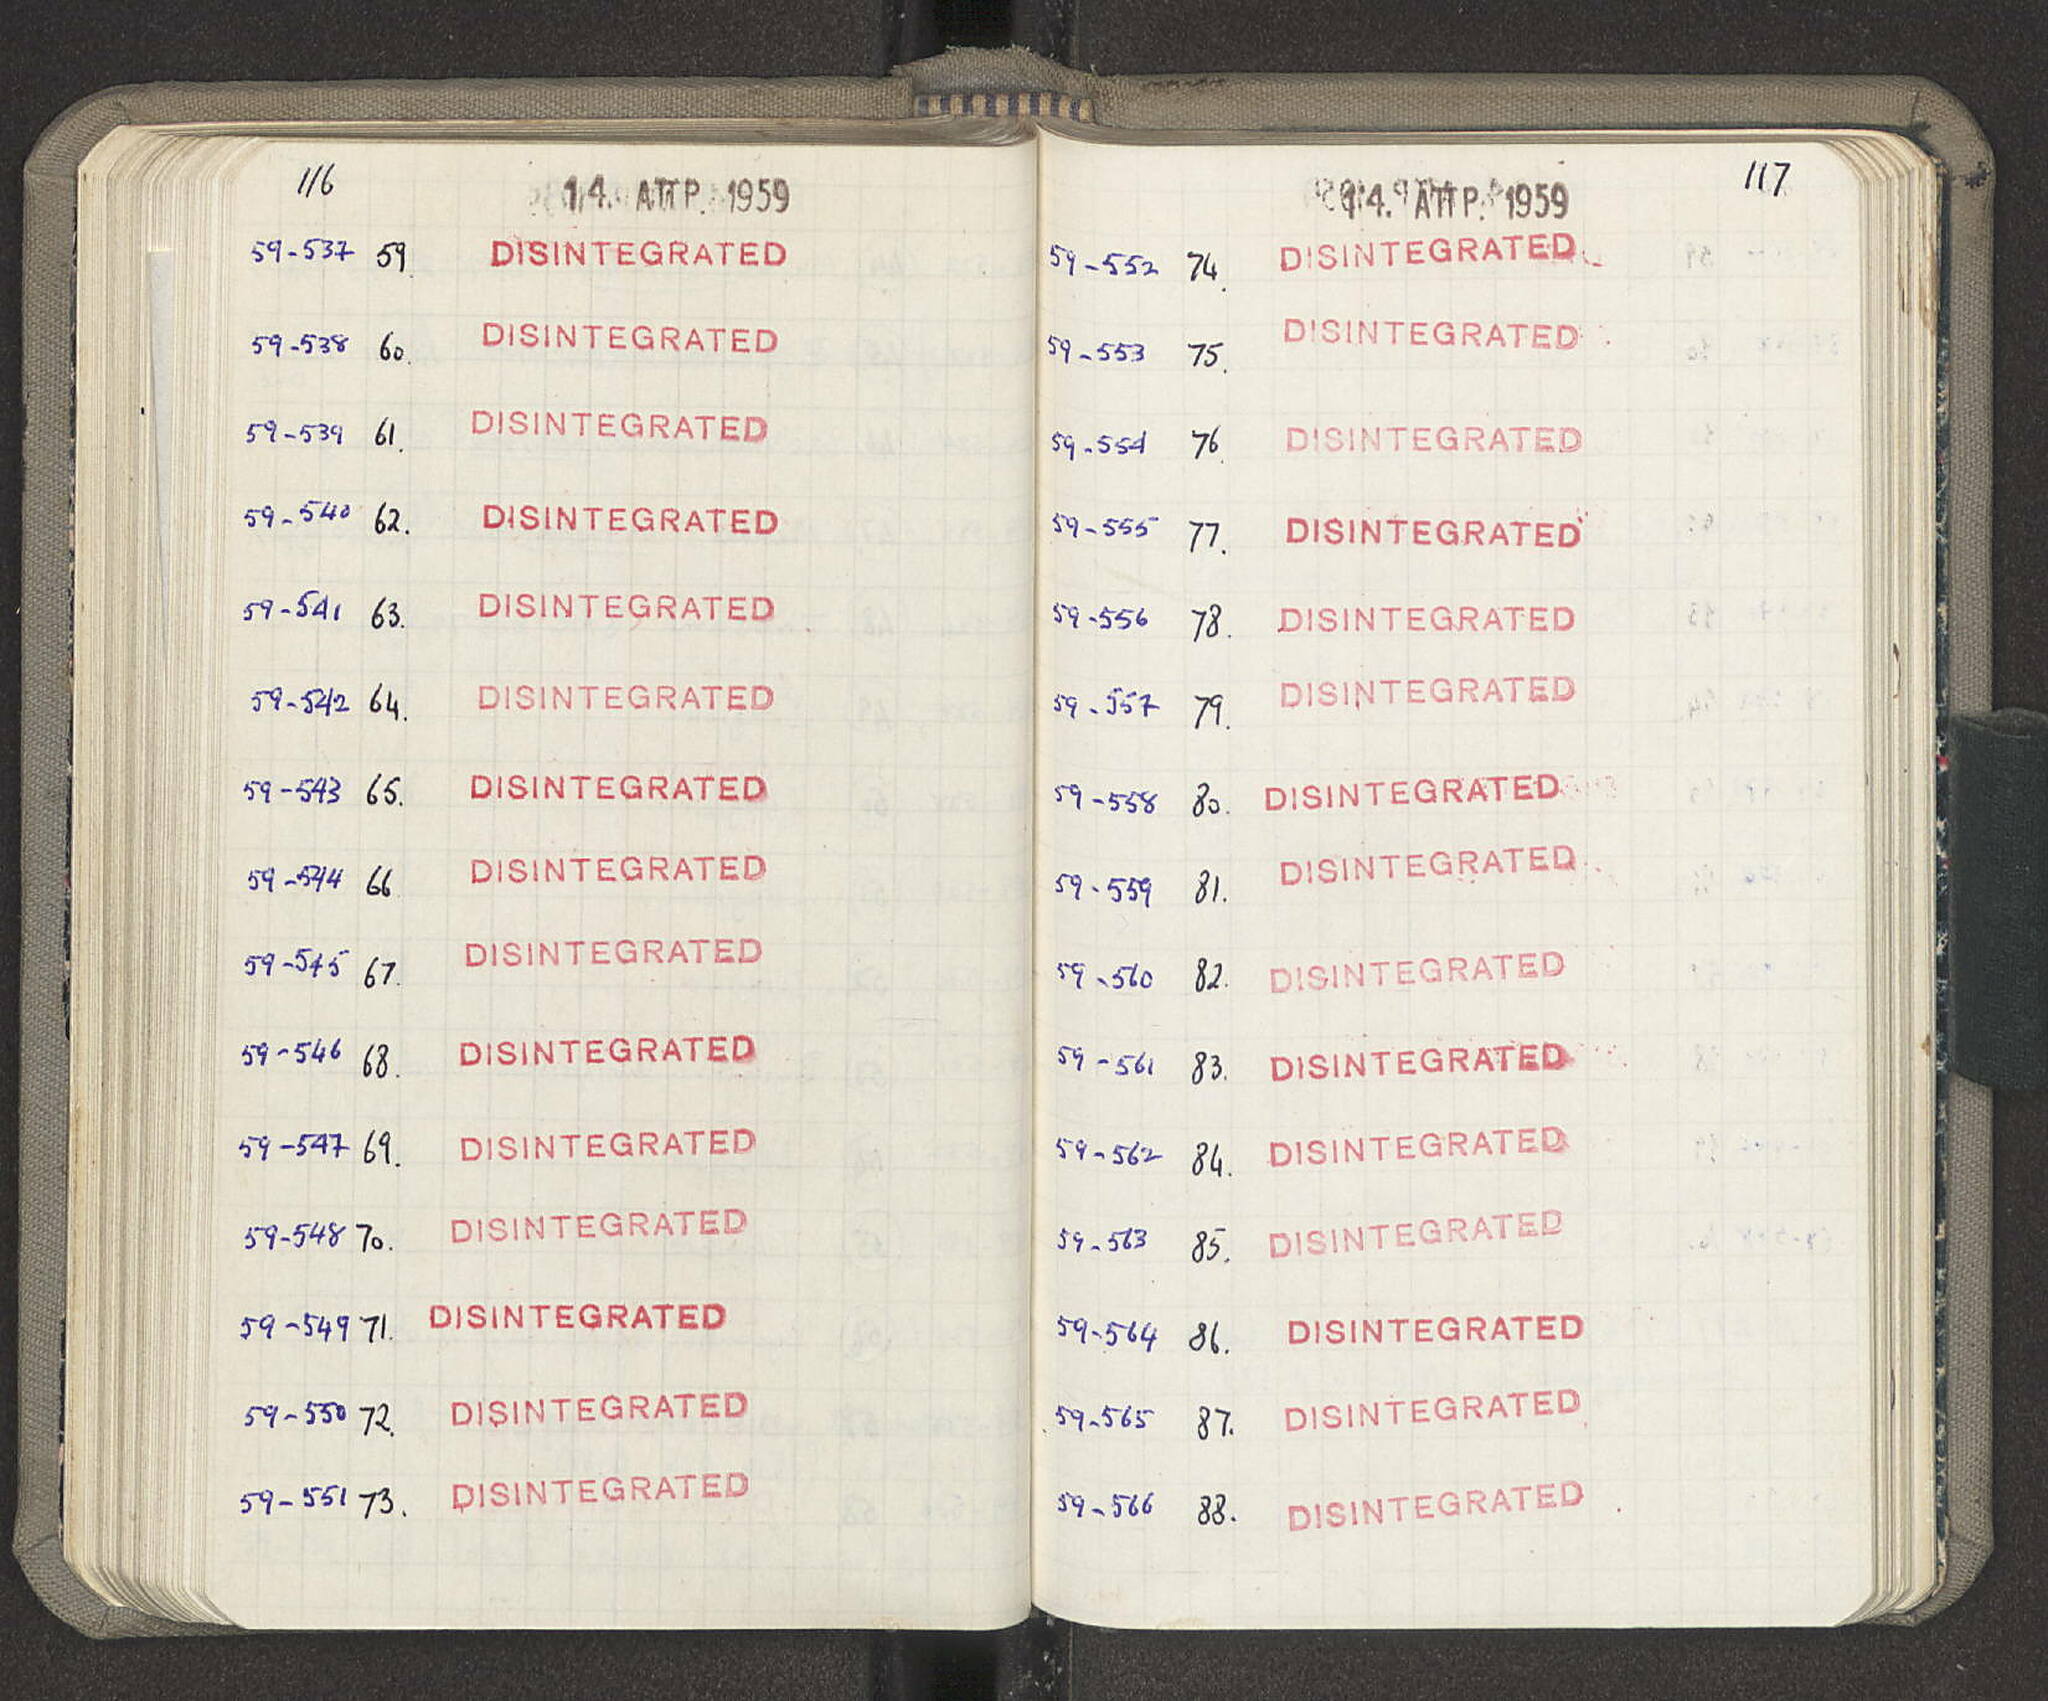 116
14. ΑΠΡ. 1959
59-537 59. DISINTEGRATED
59-538 60. DISINTEGRATED
59-539 61. DISINTEGRATED
59-540 62. DISINTEGRATED
59-541 63. DISINTEGRATED
59-542 64. DISINTEGRATED
59-543 65. DISINTEGRATED
59-544 66 DISINTEGRATED
59-545 67. DISINTEGRATED
59-546 68. DISINTEGRATED
59-547 69. DISINTEGRATED
59-548 70. DISINTEGRATED
59-549 71. DISINTEGRATED
59-550 72. DISINTEGRATED
59-551 73. DISINTEGRATED
117
14. ΑΠΡ. 1959
59-552 74. DISINTEGRATED
59-553 75. DISINTEGRATED
59-554 76. DISINTEGRATED
59-555 77. DISINTEGRATED
59-556 78. DISINTEGRATED
59-557 79. DISINTEGRATED
59-558 80. DISINTEGRATED
59-559 81. DISINTEGRATED
59-560 82. DISINTEGRATED
59-561 83. DISINTEGRATED
59-562 84. DISINTEGRATED
59-563 85. DISINTEGRATED
59-564 86. DISINTEGRATED
59-565 87. DISINTEGRATED
59-566 88. DISINTEGRATED